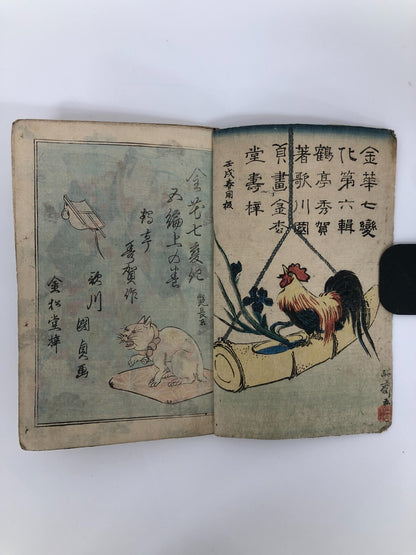 金華七變
化第六輯
鶴亭秀賀
著歌川國
貞畫金枩
堂壽梓
壬戌春開板
金花七変化
五編上の巻
鶴亭
秀賀作
歌川
國貞画
金松堂梓